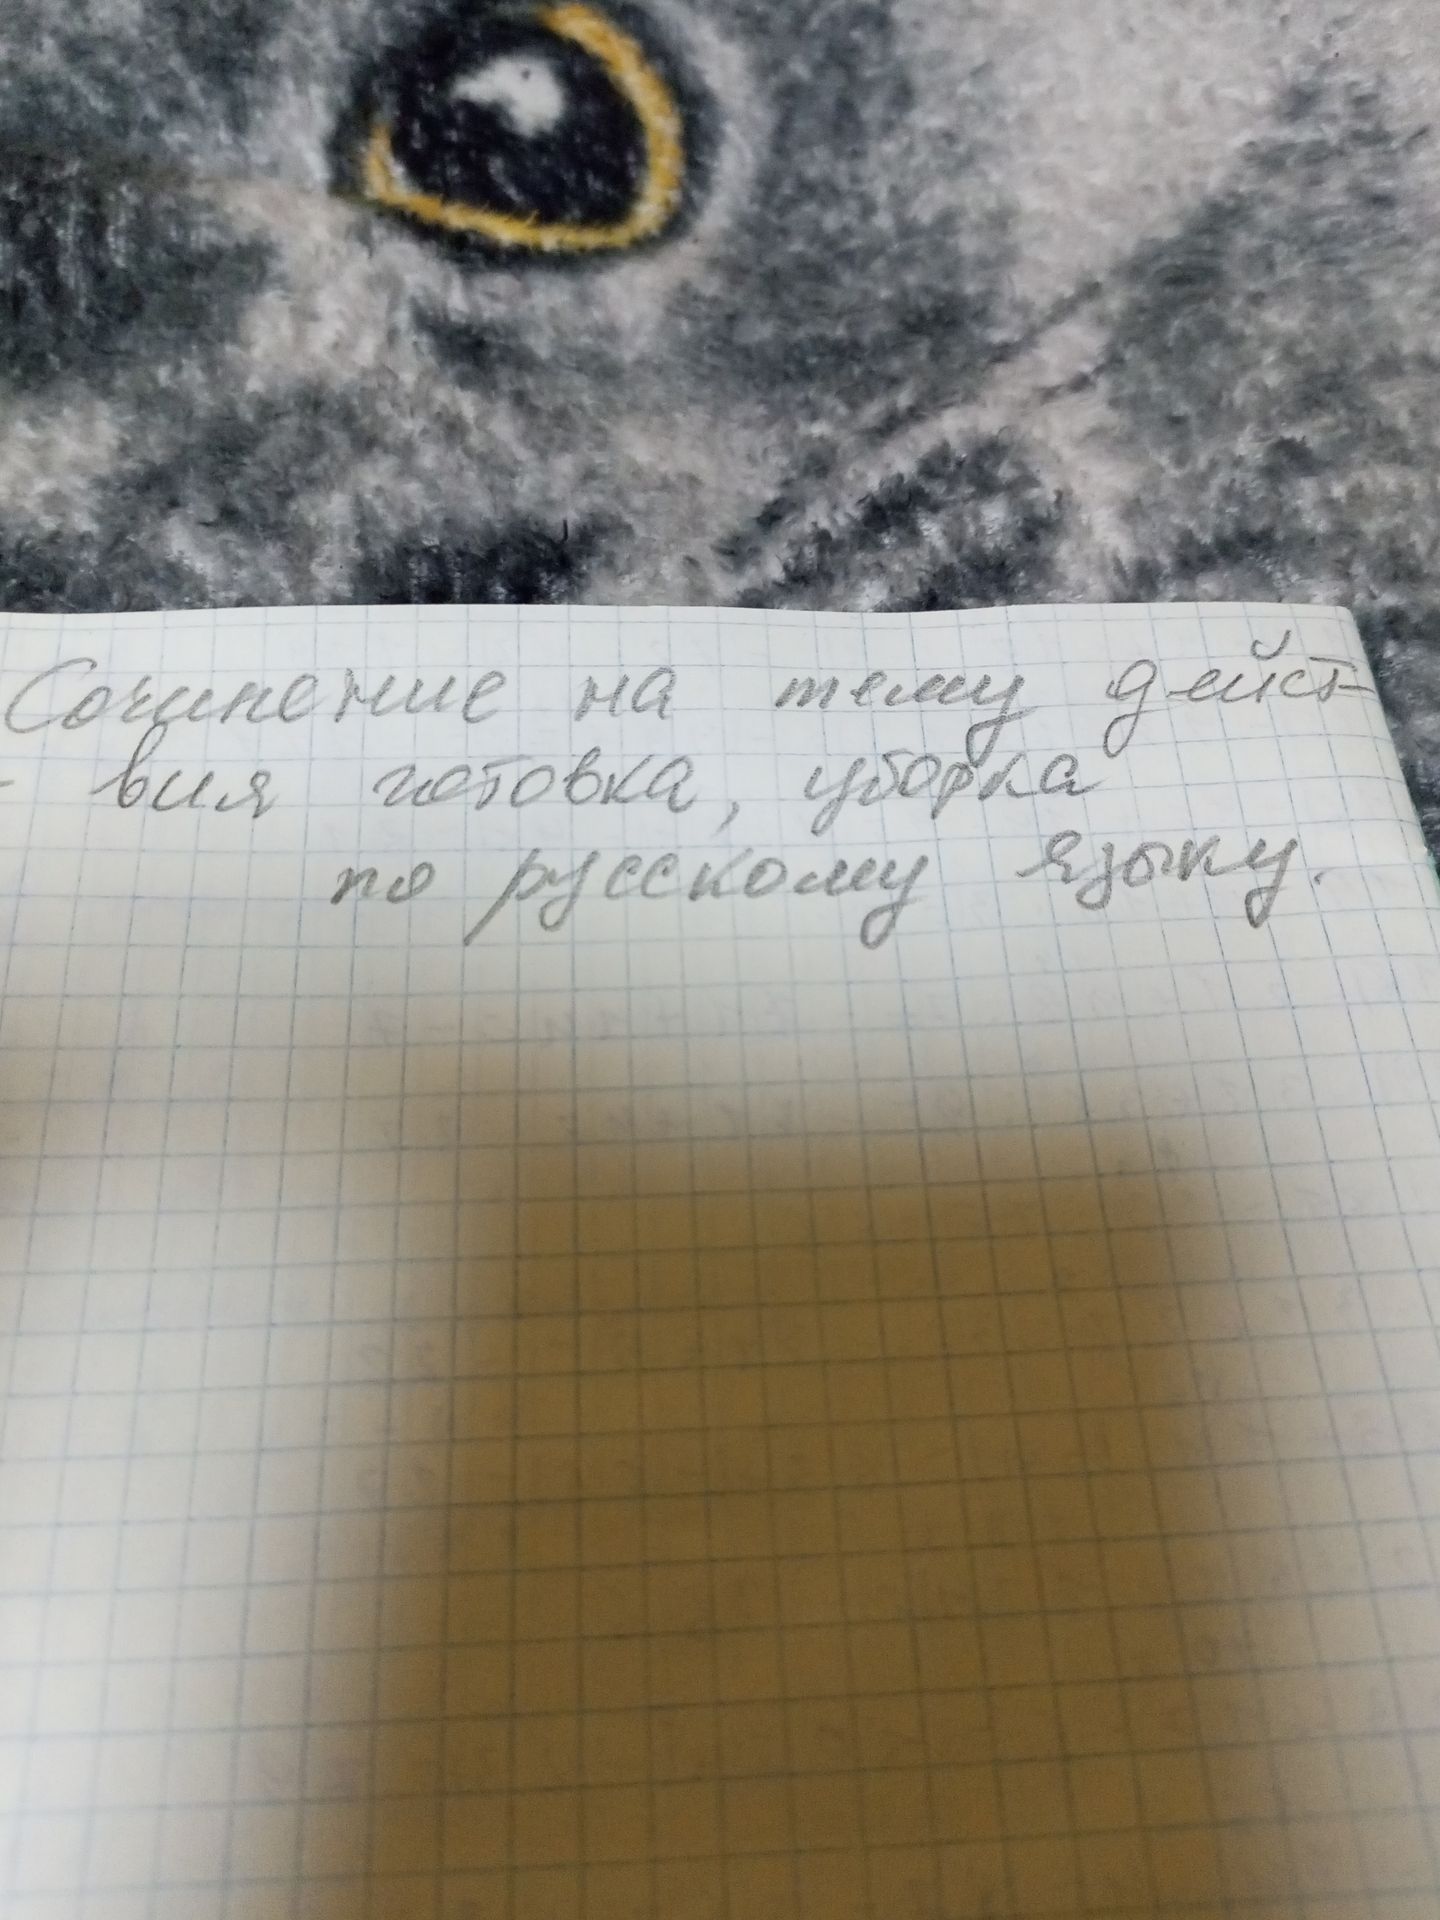 Сочинение на тему дейст-
- вия готовка, уборка
по русскому языку.